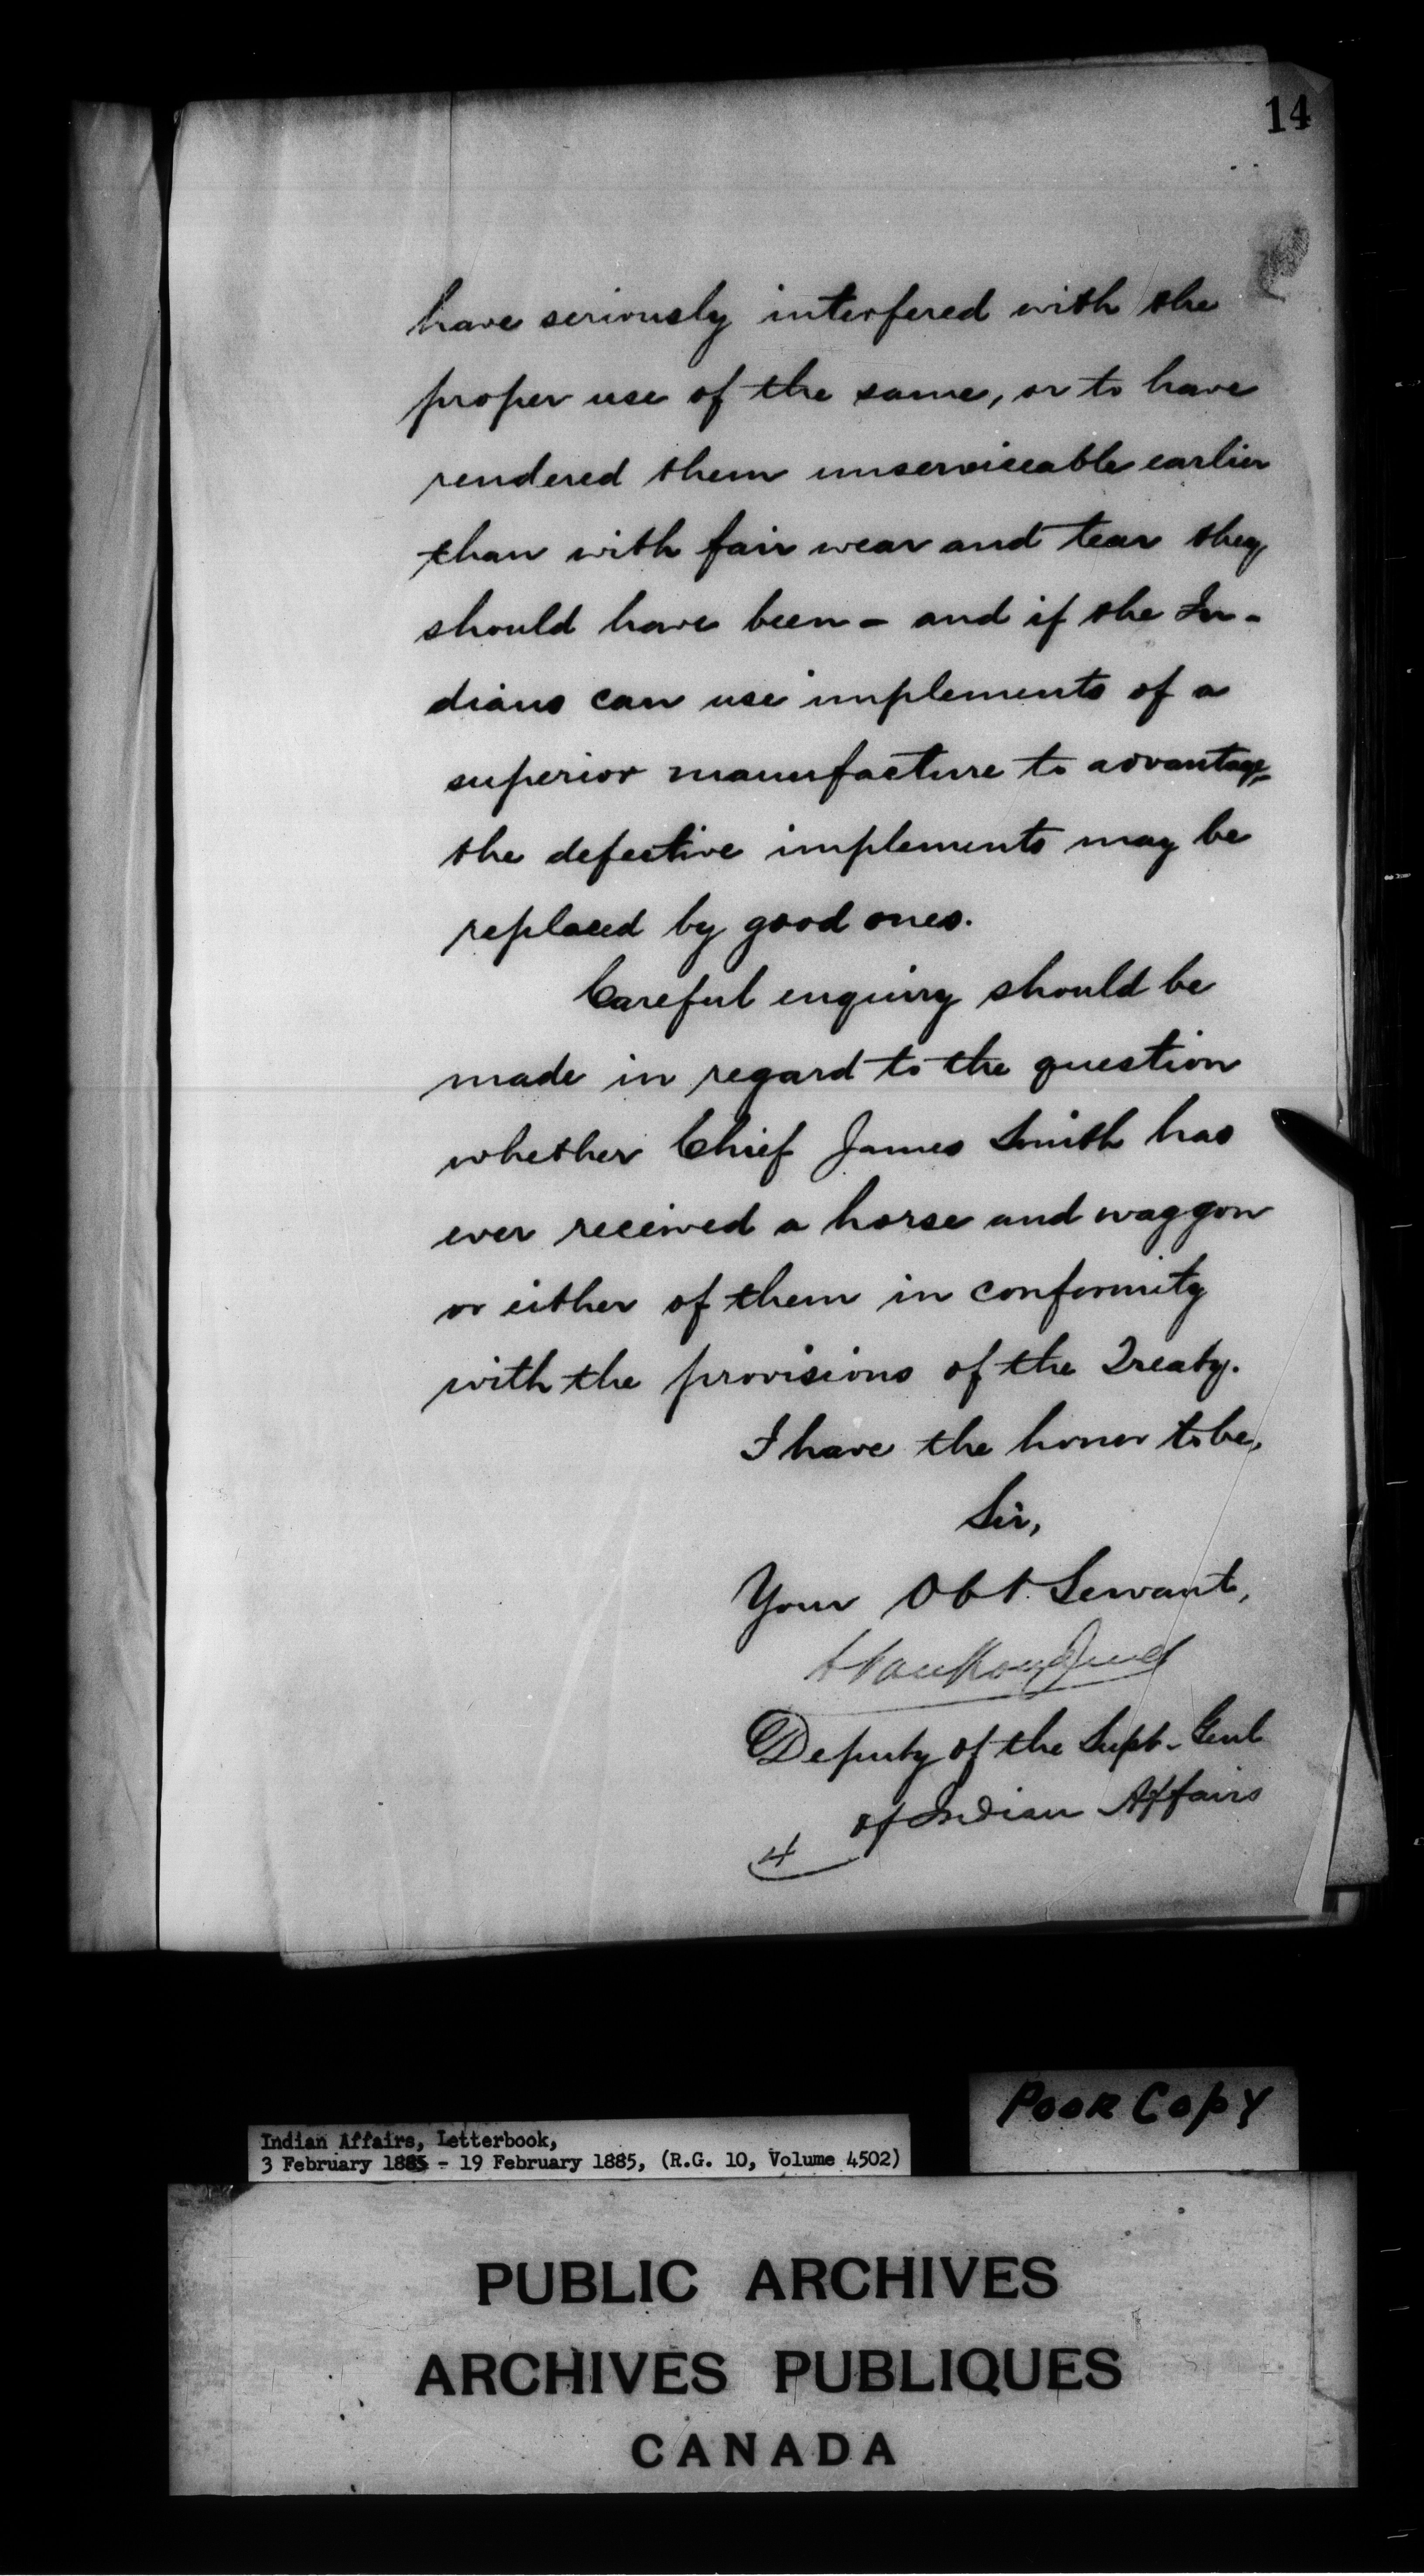 14
have seriously interfered with the
proper use of the same, or to have
rendered them unserviceable earlier
than with fair wear and tear they
should have been - and if the In-
dians can use implements of a
superior manufacture to advantage
the defective implements may be
replaced by good ones.
Careful enquiry should be
made in regard to the question
whether Chief James Smith has
ever received a horse and waggon
or either of them in conformity
with the provisions of the Treaty.
I have the honor to be,
Sir,
Your Obt. Servant,
Deputy of the Supt. Genl
of Indian Affairs
4
POOR COPY
Indian Affairs, Letterbook,
3 February 1885 - 19 February 1885, (R.G. 10, Volume 4502)
PUBLIC ARCHIVES
ARCHIVES PUBLIQUES
CANADA